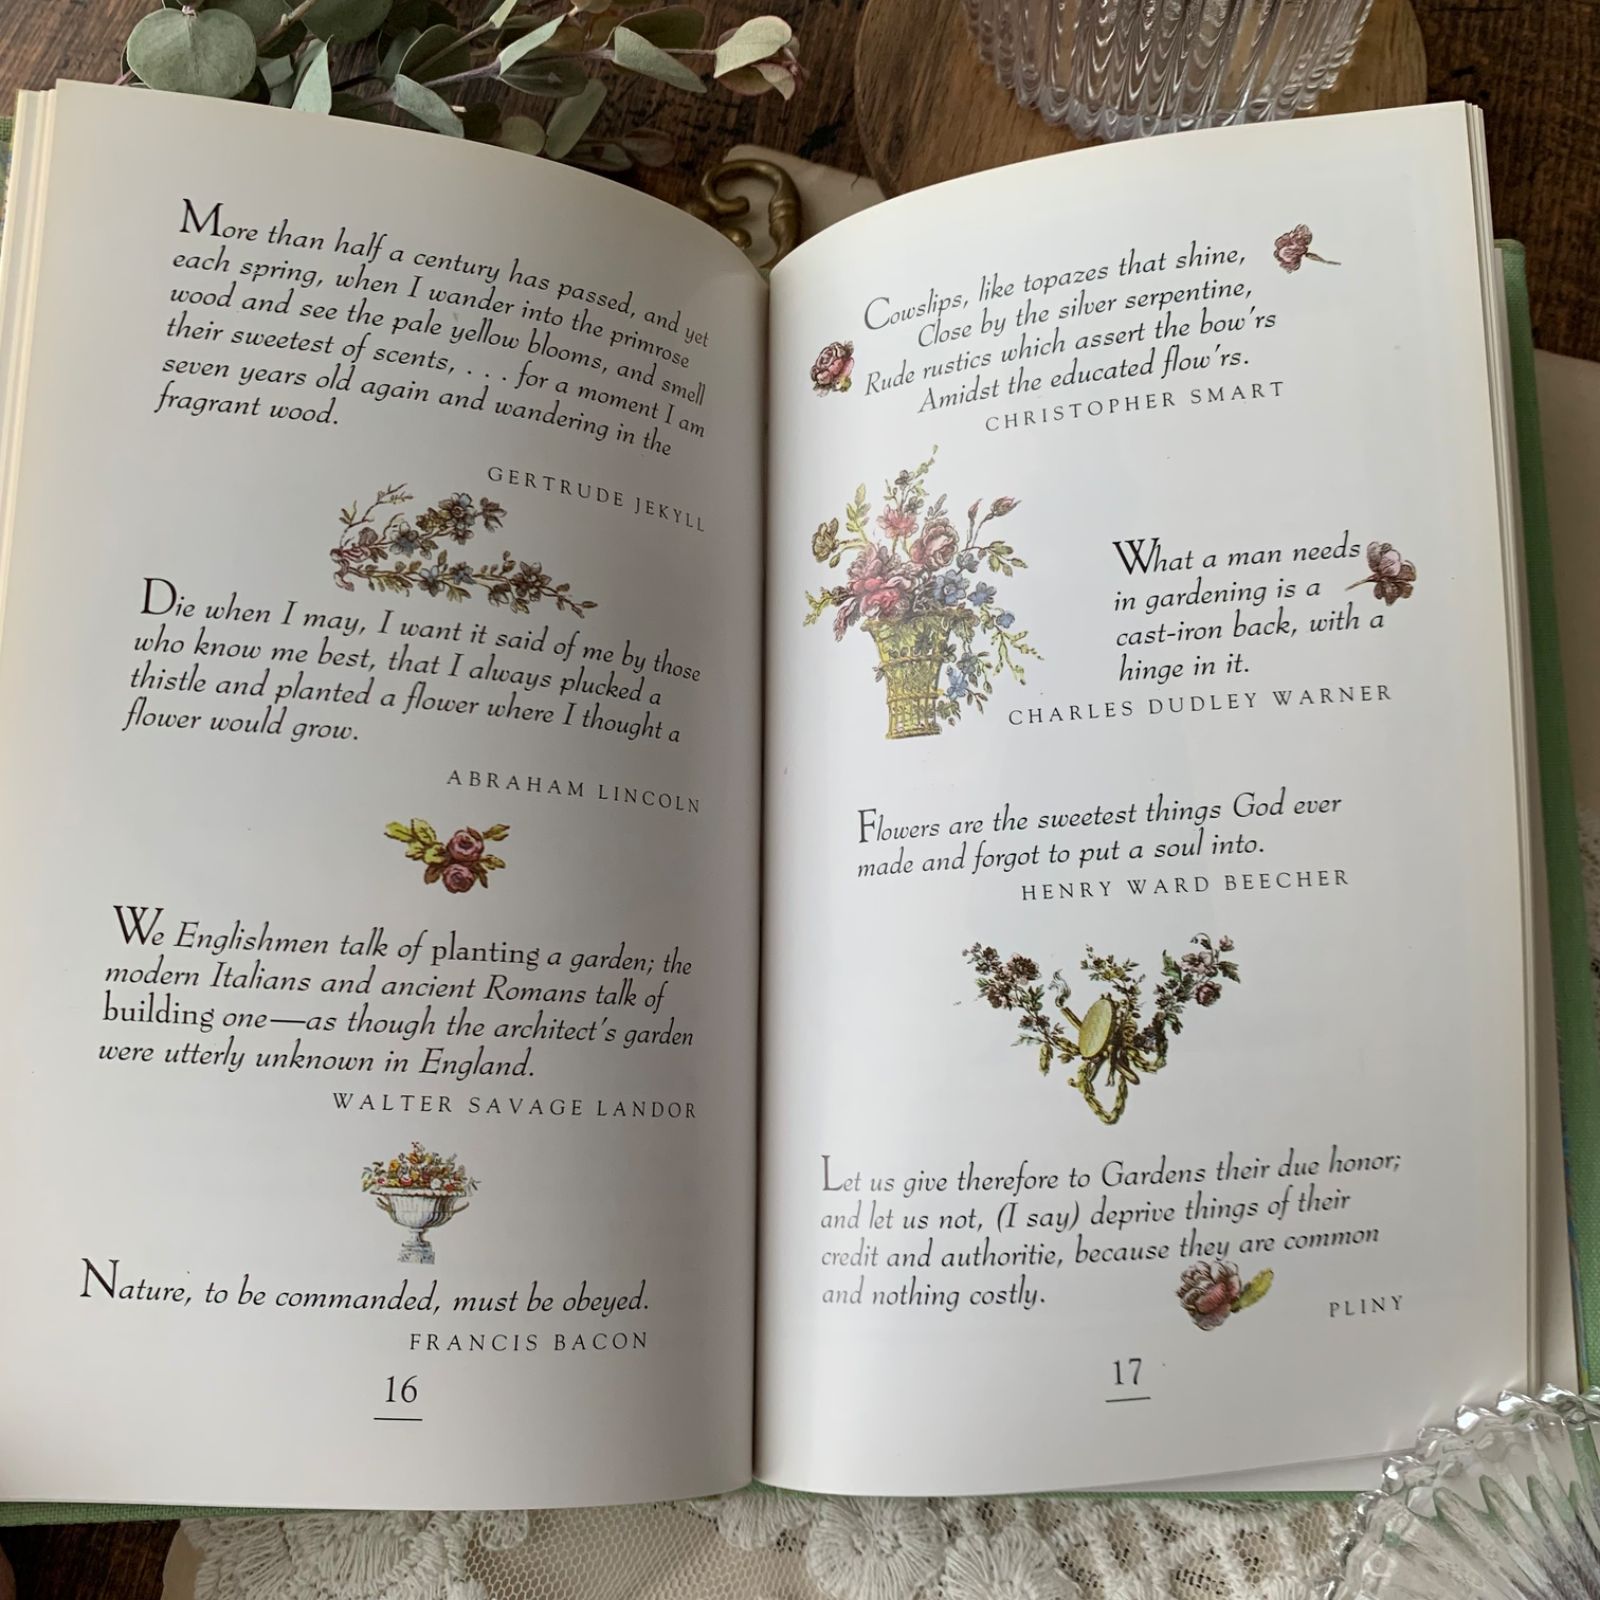 More than half a century has passed, and yet
each spring, when I wander into the primrose
wood and see the pale yellow blooms, and smell
their sweetest of scents, . . . for a moment I am
seven years old again and wandering in the
fragrant wood.
GERTRUDE JEKYLL
Die when I may, I want it said of me by those
who know me best, that I always plucked a
thistle and planted a flower where I thought a
flower would grow.
ABRAHAM LINCOLN
We Englishmen talk of planting a garden; the
modern Italians and ancient Romans talk of
building one—as though the architect's garden
were utterly unknown in England.
WALTER SAVAGE LANDOR
Nature, to be commanded, must be obeyed.
FRANCIS BACON
16
Cowslips, like topazes that shine,
Close by the silver serpentine,
Rude rustics which assert the bow'rs
Amidst the educated flow'rs.
CHRISTOPHER SMART
What a man needs
in gardening is a
cast-iron back, with a
hinge in it.
CHARLES DUDLEY WARNER
Flowers are the sweetest things God ever
made and forgot to put a soul into.
HENRY WARD BEECHER
Let us give therefore to Gardens their due honor;
and let us not, (I say) deprive things of their
credit and authoritie, because they are common
and nothing costly.
PLINY
17